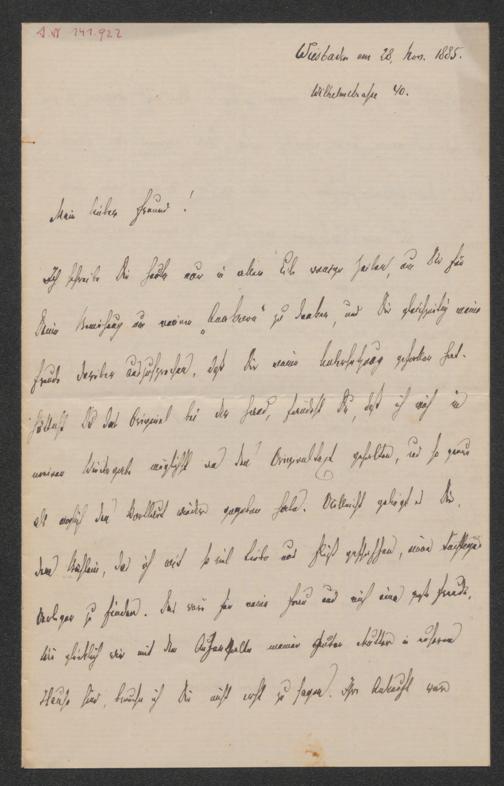 J.N 141.922
Wiesbaden am 28. Nov. 1885.
Wilhelmstraße 40.
Mein lieber Freund!
Ich schreibe Dir heute nur in aller Eile wenige Zeilen, um Dir für
Deine Bemühung um meine " " zu danken, und Dir gleichzeitig meine
Freude darüber auszusprechen, daß Dir meine Übersetzung gefallen hat.
Hättest Du das Original bei der Hand, fändest Du, daß ich mich in
meiner Wiedergabe möglichst an den Originaltext gehalten, und so genau
als möglich den Wortlaut wieder gegeben habe. Vielleicht gelingt es Dir,
dem, das ich mit so viel Liebe und Fleiß, einen
Verleger zu finden. Das wäre für meine Frau und mich eine große Freude.
Wie glücklich wir mit dem Aufenthalte meiner guten Mutter in unserem
Hause sind, brauche ich Dir nicht erst zu sagen. Ihre Ankunft war